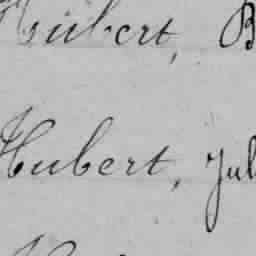 Hubert, B
Hubert, Jul